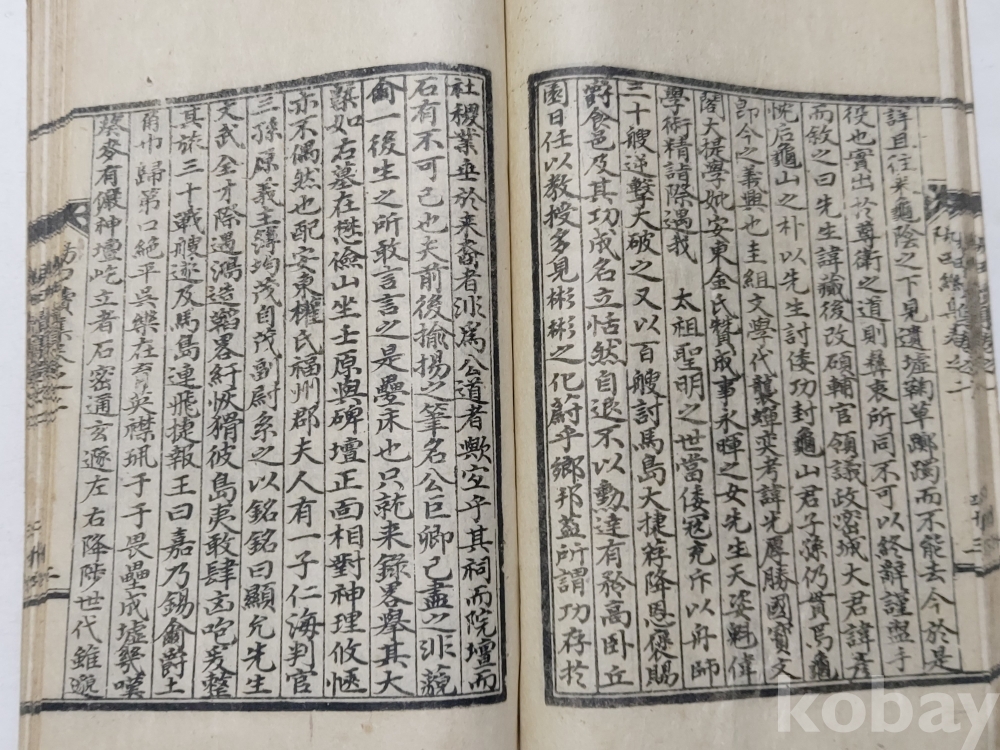 詳且行矣龜陰之下見遺墟鞠草躑躅而不能去今於是
役也實出於尊衛之道則彝衷所同不可以終辭謹盥手
而敘之曰先生諱葳後改碩輔官領議政密城大君諱彥
忱后龜山之朴以先生討倭功封龜山君子孫仍貫焉龜
卽今之義興也圭組文學代襲蟬奕考諱光厚勝國寶文
閣大提學妣安東金氏贊成事永暉之女先生天姿魁偉
學術精詣際遇我 太祖聖明之世當倭寇充斥以舟師
三十艘逆擊大破之又以百艘討馬島大捷將降恩褒賜
爵食邑及其功成名立恬然自退不以勳達有矜高臥丘
園日任以教授多見彬彬之化蔚乎鄉邦益所謂功存於
社稷業垂於來裔者非爲公道者歟宜乎其祠而院壇而
石有不可已也夫前後揄揚之筆名公巨卿已盡之非藐
侖一後生之所敢言言之是疊床也只就來錄畧舉其大
槩如右墓在懋儉山坐壬原與碑壇正面相對神理攸愜
亦不偶然也配安東權氏福州郡夫人有一子仁海判官
三孫原義主簿均茂自茂副尉系之以銘銘曰顯允先生
文武全才際遇鴻造滔畧紆恢猾彼島夷敢肆凶咆爰整
其旅三十戰艘逐及馬島連飛捷報王曰嘉乃錫爾爵土
角巾歸第口絶平吳樂在育英襟珮于于畏壘成墟幾嘆
葵麥有儼神壇屹立者石密通玄遂左右降陟世代雖邈
kobay